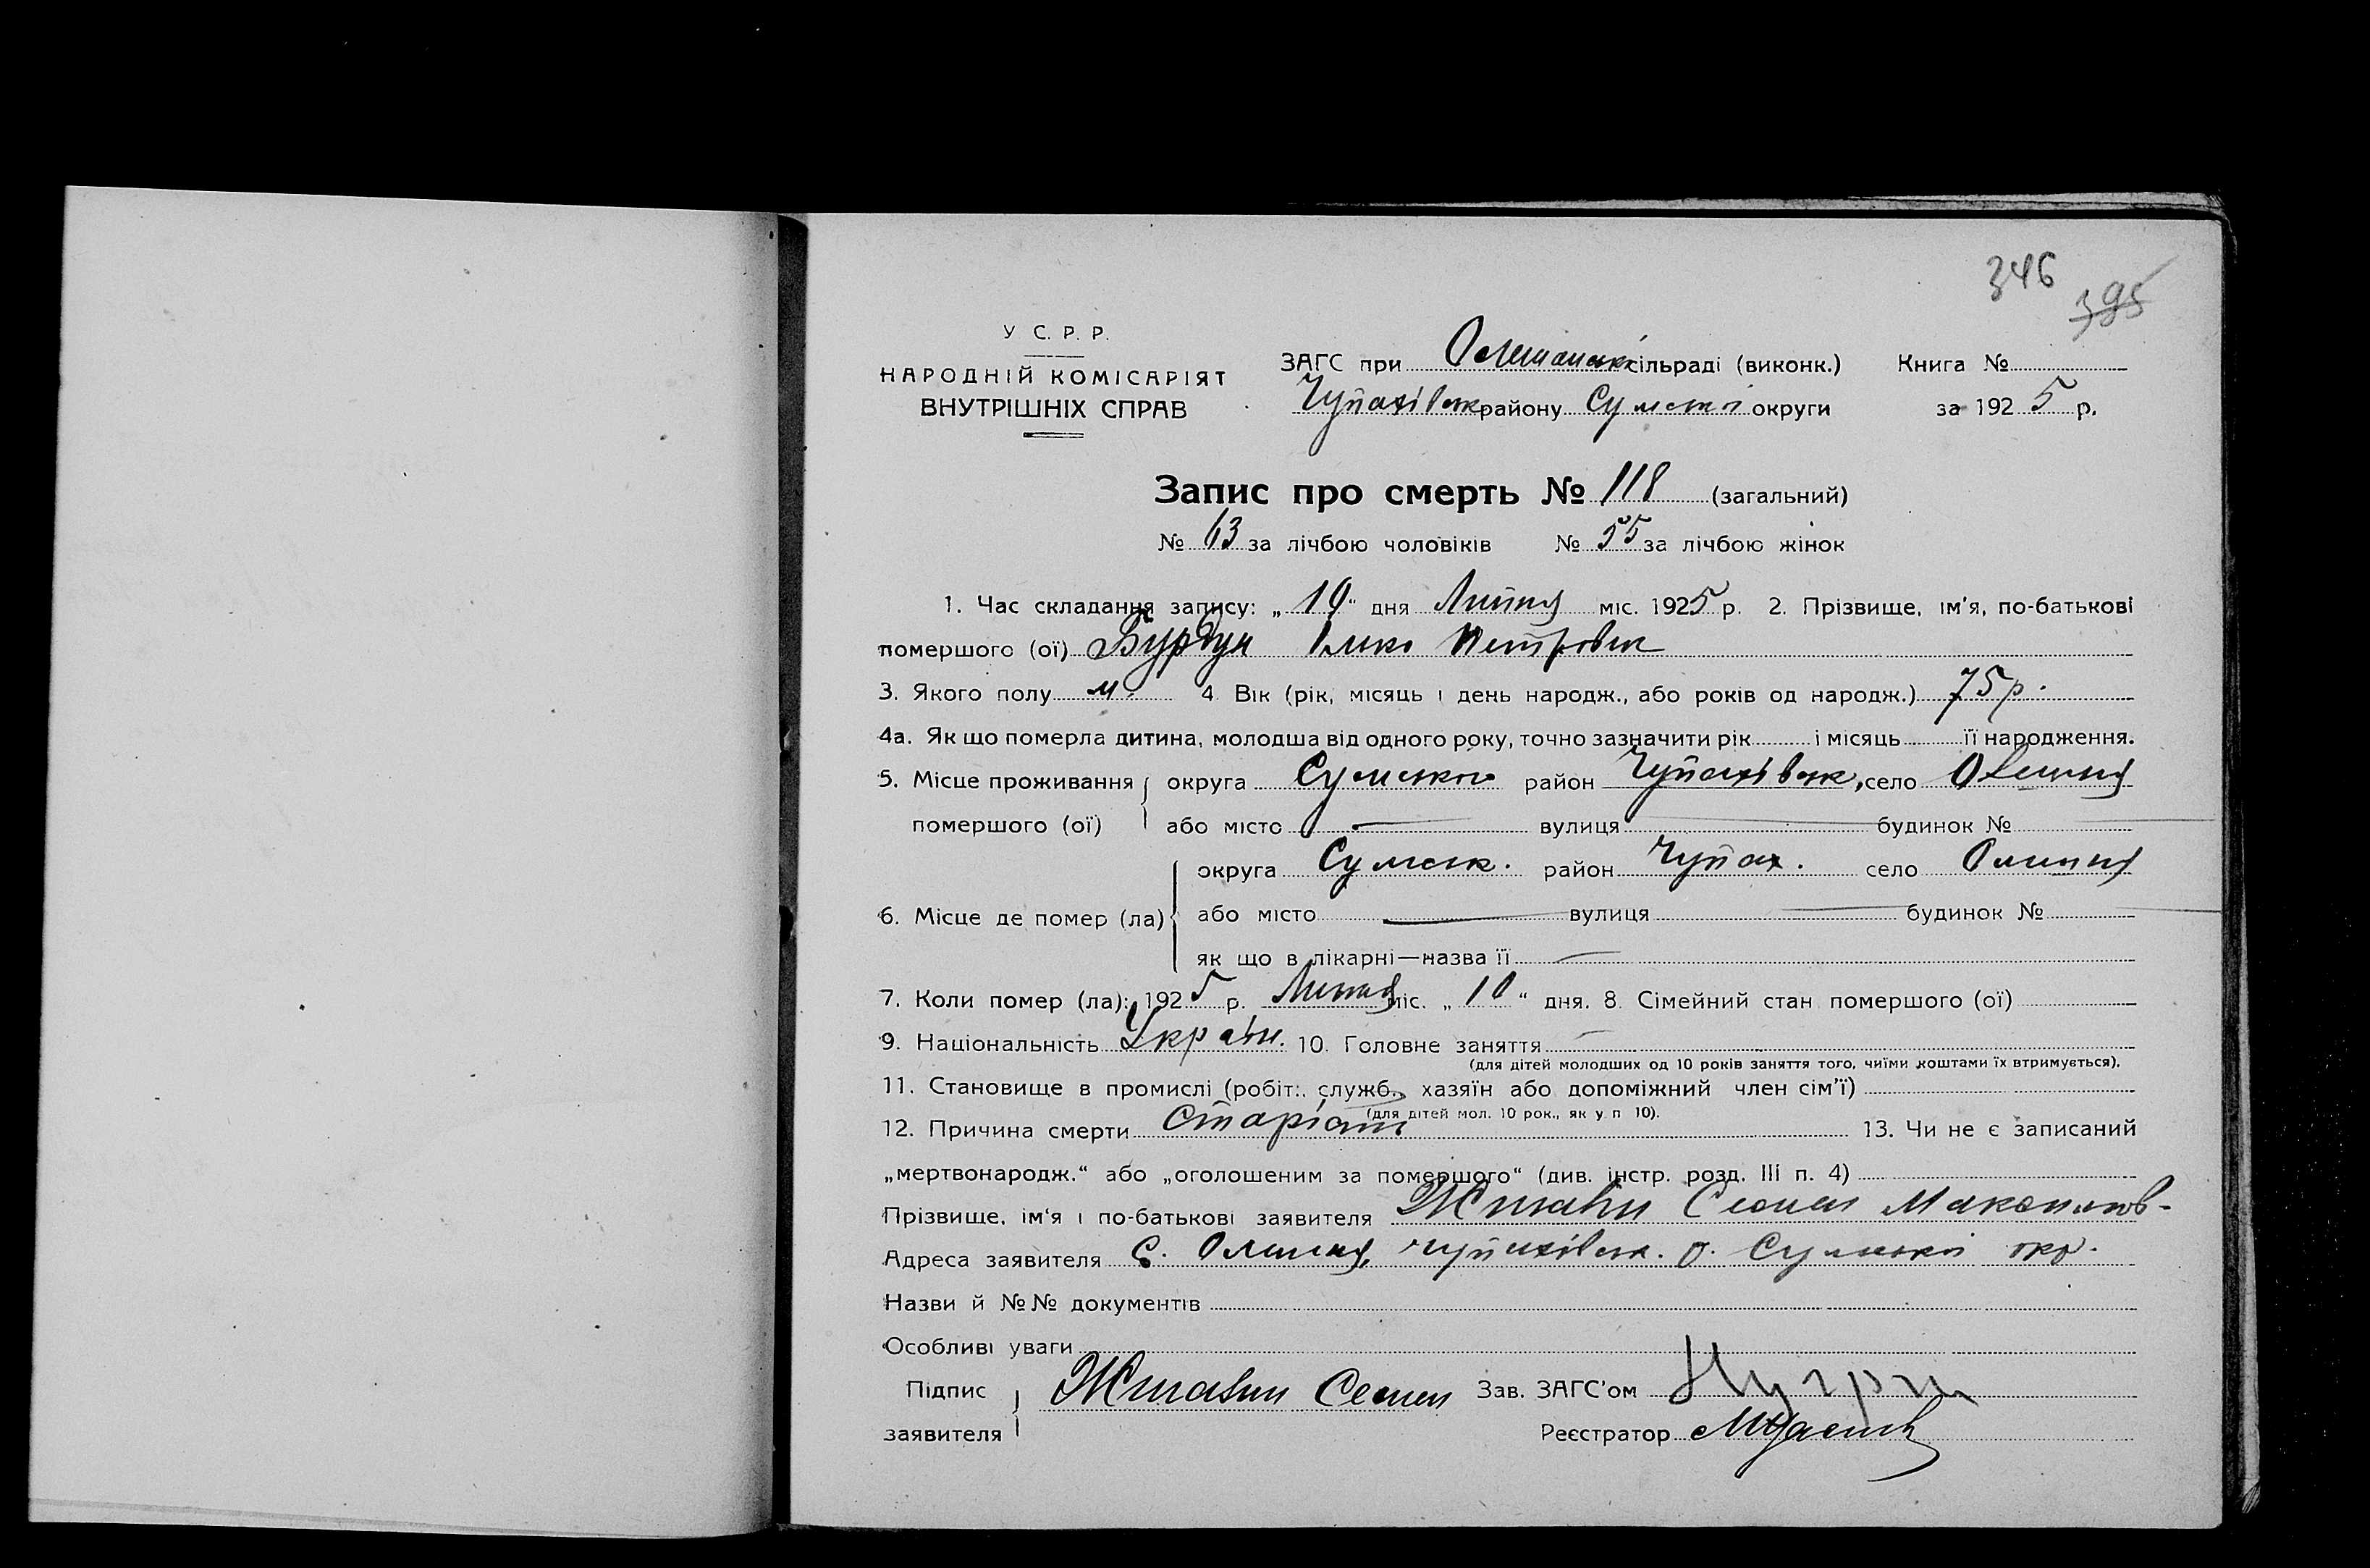 346
395
У С. Р. Р.
НАРОДНІЙ КОМІСАРІЯТ
ВНУТРІШНІХ СПРАВ
ЗАГС при Олешанські сільраді (виконк.) Книга №
Чупахівськ району Сумської округи за 1925 р.
Запис про смерть № 118 (загальний)
№ 63 за лічбою чоловіків № 55 за лічбою жінок
1. Час складання запису: „ 10 “ дня Липня міс. 1925 р. 2. Прізвище, ім'я, по-батькові
помершого (ої) Бурдун Петрович
3. Якого полу м. 4. Вік (рік, місяць і день народж., або років од народж.) 75 р.
4а. Як що померла дитина, молодша від одного року, точно зазначити рік і місяць її народження.
5. Місце проживання округа Сумського район Чупахівськ, село Олешня
помершого (ої) або місто — вулиця — будинок № —
округа Сумськ. район Чупах. село Олешня
6. Місце де помер (ла) або місто — вулиця — будинок № —
як що в лікарні—назва її —
7. Коли помер (ла): 1925 р. Липня міс. „ 10 “ дня. 8. Сімейний стан помершого (ої)
9. Національність Україн. 10. Головне заняття —
(для дітей молодших од 10 років заняття того, чиїми коштами їх втримується).
11. Становище в промислі (робіт., служб., хазяїн або допоміжний член сім'ї)
(для дітей мол. 10 рок., як у п 10).
12. Причина смерти 13. Чи не є записаний
„мертвонародж.“ або „оголошеним за помершого“ (див. інстр. розд. III п. 4)
Прізвище, ім'я і по-батькові заявителя Семен
Адреса заявителя С. Олешня, Чупахівськ. р. Сумської окр.
Назви й №№ документів
Особливі уваги
Підпис Семен Зав. ЗАГС'ом
заявителя Реєстратор